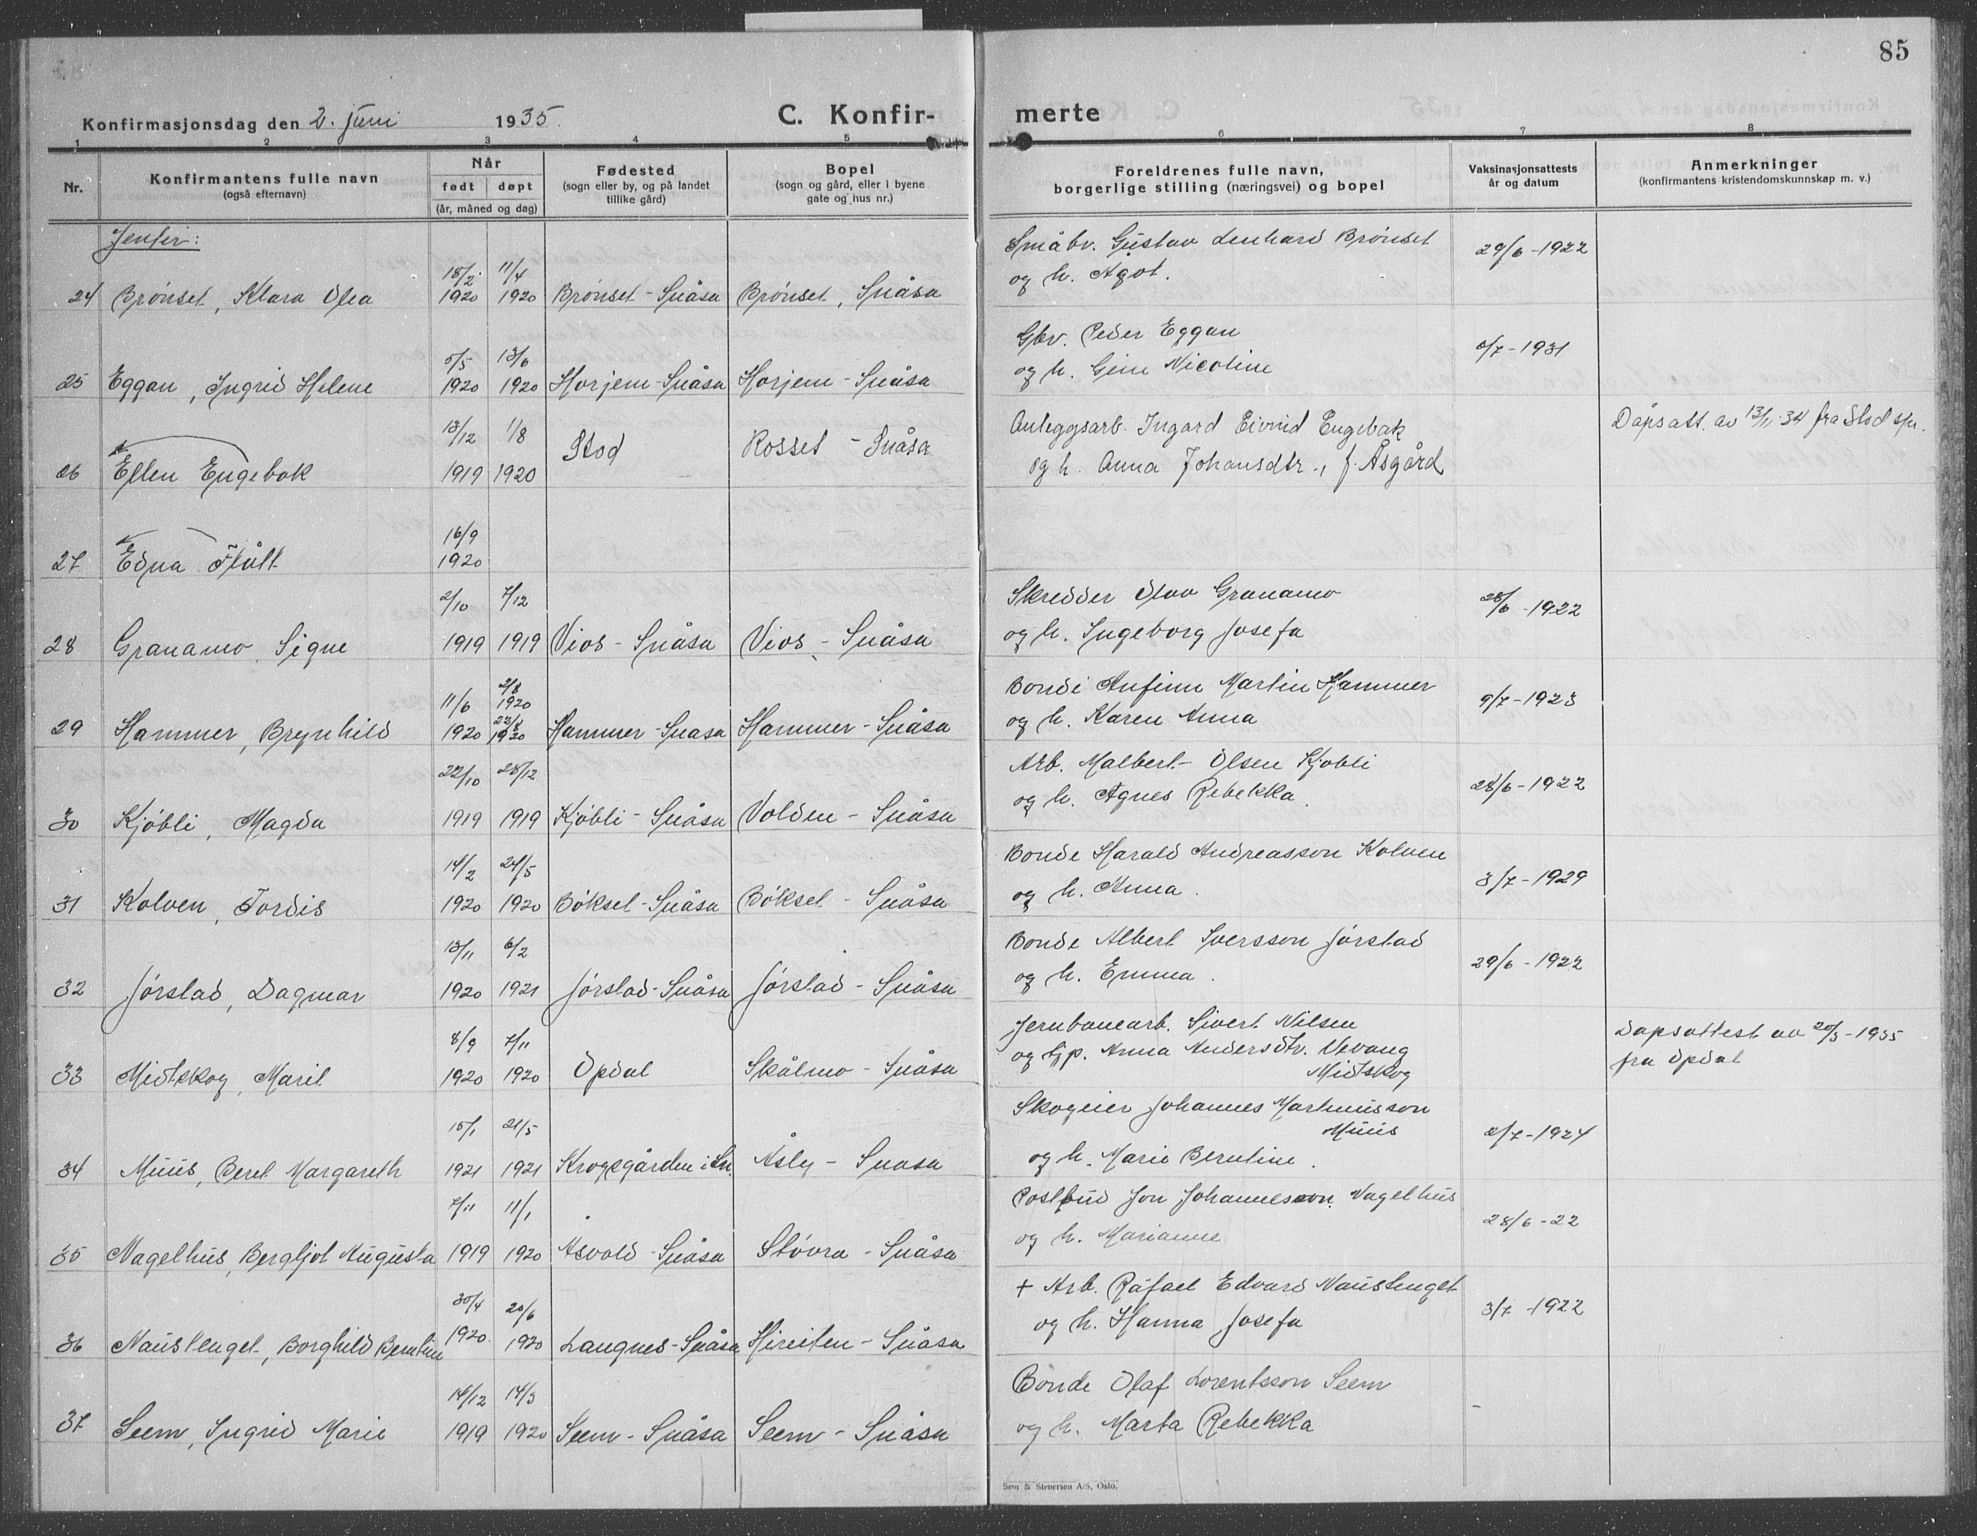 85
Konfirmasjonsdag den 2. juni 1935.
C. Konfir-
merte
1 2 3 4 5 6 7 8
Nr.
Konfirmantens fulle navn
(også efternavn)
Når
født døpt
(år, måned og dag)
Fødested
(sogn eller by, og på landet
tillike gård)
Bopel
(sogn og gård, eller i byene
gate og hus nr.)
Foreldrenes fulle navn,
borgerlige stilling (næringsvei) og bopel
Vaksinasjonsattests
år og datum
Anmerkninger
(konfirmantens kristendomskunnskap m. v.)
Jenter:
18/2 11/4 Småbr. Gustav Lenhard Brönset 29/6-1922
24 Brönset, Klara Olea 1920 1920 Brönset - Snåsa Brönset, Snåsa og h. Agot.
5/5 13/6 Gbr. Peder Eggan 5/7-1931
25 Eggan, Ingrid Helene 1920 1920 Horjem - Snåsa Horjem - Snåsa og h. Gine Nicoline
13/12 1/8 Stod Rosset - Snåsa Anleggsarb. Ingard Eivind Engebak Dåpsatt. av 13/11 34 fra Stod spr.
26 Ellen Engebak 1919 1920 og h. Anna Johansdtr., f. Åsgård
16/9
27 Edna Flått 1920
2/10 7/12 Skredder Olav Granamo 28/6-1922
28 Granamo, Signe 1919 1919 Vios - Snåsa Vios - Snåsa og h. Ingeborg Josefa
11/6 2/8 1920 Bonde Anfinn Martin Hammer 9/7-1923
29 Hammer, Brynhild 1920 1920 Hammer - Snåsa Hammer - Snåsa og h. Karen Anna
22/10 28/12 Arb. Malbert Olsen Kjöbli 28/6-1922
30 Kjöbli, Magda 1919 1919 Kjöbli - Snåsa Volden - Snåsa og h. Agnes Rebekka.
14/2 24/5 Bonde Harald Andreasson Kolven 3/7-1929
31 Kolven, Tordis 1920 1920 Böksel - Snåsa Böksel - Snåsa og h. Anna.
13/11 6/2 Bonde Albert Iversson Jørstad 29/6-1922
32 Jørstad, Dagmar 1920 1921 Jørstad - Snåsa Jørstad - Snåsa og h. Emma.
8/9 7/11 Jernbanearb. Sivert Nilsen Dåpsattest av 20/3-1935
33 Midtskog, Marit 1920 1920 Opdal Skålmo - Snåsa og hp. Anna Andersdtr. Vevang Midtskog fra Opdal
15/1 21/5 Skogeier Johannes Martinusson Muus 2/7-1924
34 Muus, Beret Margareth 1921 1921 Krogsgården i Sn. Åsly - Snåsa og h. Marie Berntine.
7/11 11/1 Postbud Jon Johannesson Nagelhus 28/6-22
35 Nagelhus, Bergljot Augusta 1919 1920 Åsvold - Snåsa Stövra - Snåsa og h. Marianne
30/4 20/6 + Arb. Rafael Edvard Naustenget 3/7-1922
36 Naustenget, Borghild Berntine 1920. 1920 Langnes - Snåsa Hireiten - Snåsa og h. Hanna Josefa
14/12 14/3 Bonde Olaf Lorentsson Seem -
37 Seem, Ingrid Marie 1919 1920 Seem - Snåsa Seem - Snåsa og h. Marta Rebekka
Sem & Stenersen A/S, Oslo.